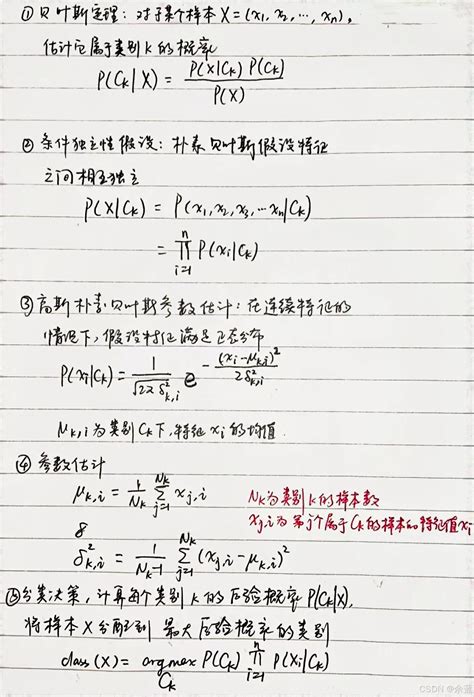 ①贝叶斯定理：对于某个样本X=(x₁, x₂, ⋯, xₙ),
估计它属于类别k的概率
P(Cₖ|X) = P(X|Cₖ) P(Cₖ) / P(X)
②条件独立性假设：朴素贝叶斯假设特征
之间相互独立
P(X|Cₖ) = P(x₁, x₂, x₃, ⋯xₙ|Cₖ)
= ∏ᵢ₌₁ⁿ P(xᵢ|Cₖ)
③高斯朴素贝叶斯参数估计：在连续特征的
情况下，假设特征满足正态分布
P(xᵢ|Cₖ) = 1/√(2πδ²ₖ,ᵢ) e^(-(xᵢ-μₖ,ᵢ)²/2δ²ₖ,ᵢ)
μₖ,ᵢ为类别Cₖ下，特征xᵢ的均值
④参数估计
μₖ,ᵢ = 1/Nₖ ∑ⱼ₌₁^Nₖ xⱼ,ᵢ
Nₖ为类别k的样本数
xⱼ,ᵢ为第j个属于Cₖ的样本的特征值xᵢ
δ²ₖ,ᵢ = 1/(Nₖ-1) ∑ⱼ₌₁^Nₖ (xⱼ,ᵢ-μₖ,ᵢ)²
⑤分类决策，计算每个类别k的后验概率P(Cₖ|X),
将样本X分配到最大后验概率的类别
class(X) = argmax_Cₖ P(Cₖ) ∏ᵢ₌₁ⁿ P(xᵢ|Cₖ)